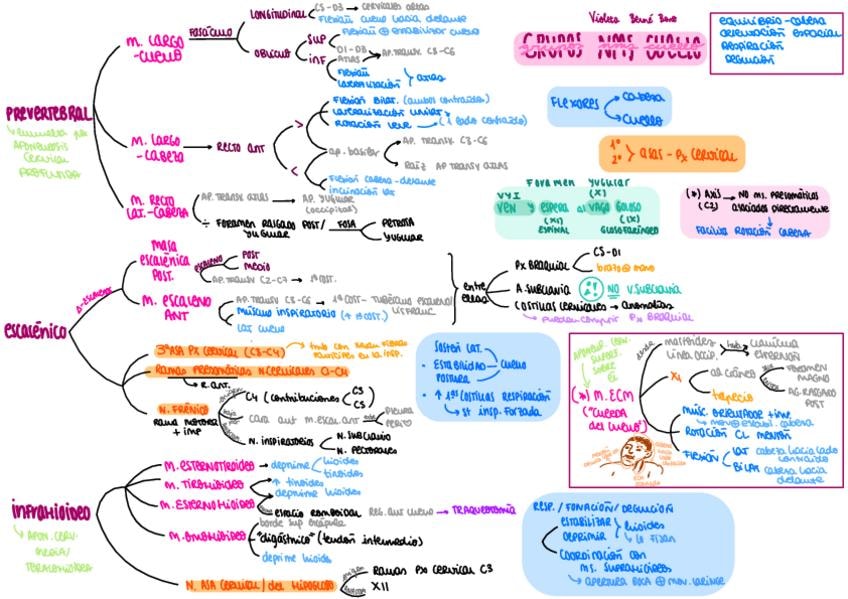 Violeta Berné Bero
GRUPOS NMS CUELLO
EQUILIBRIO-CABEZA
ORIENTACIÓN ESPACIAL
RESPIRACIÓN
DEGLUCIÓN
PREVERTEBRAL
APONEUROSIS
CERVICAL
PROFUNDA
M. LARGO
-CUELLO
FASCÍCULO
LONGITUDINAL
C5-D3 → CERVICALES ALTAS
FLEXIÓN CUELLO HACIA DELANTE
OBLICUO
SUP
FLEXIÓN ⊕ ESTABILIZAR CUELLO
INF
D1-D3
ATLAS
AP. TRANSV. C3-C6
FLEXIÓN
LATERALIZACIÓN
ATLAS
M. LARGO
-CABEZA
RECTO ANT
FLEXIÓN BILAT. (AMBOS CONTRAÍDOS)
LATERALIZACIÓN UNILAT.
ROTACIÓN LEVE
(1 LADO CONTRAÍDO)
AP. BASILAR
AP. TRANSV. C3-C6
RAÍZ AP TRANSV ATLAS
FLEXIÓN CABEZA-DELANTE
INCLINACIÓN LAT.
M. RECTO
LAT.-CABEZA
AP. TRANSV ATLAS → AP. YUGULAR
(OCCIPITAL)
÷ FORAMEN RASGADO POST/
YUGULAR
FOSA
PETROSA
YUGULAR
FLEXORES
CABEZA
CUELLO
1º
2º
ASAS - PX CERVICAL
Foramen yugular
VYI
(X)
VEN Y ESPERA al VAGO GOLOSO
(XI)
(IX)
ESPINAL
GLOSOFARÍNGEO
(*) AXIS → NO MS. PRESOMÁTICOS
(C2)
ASOCIADOS DIRECTAMENTE
FACILITA ROTACIÓN CABEZA
ESCALÉNICO
MASA
ESCALÉNICA
POST.
ESCALENO
POST
MEDIO
AP. TRANSV C2-C7 → 1ª COST.
M. ESCALENO
ANT
AP. TRANSV C3-C6 → 1ª COST-TUBÉRCULO ESCALENO/
LISFRANC
MÚSCULO INSPIRATORIO (↑ 1ª COST.)
LAT CUELLO
ENTRE
ELLAS
PX BRAQUIAL
C5-D1
BRAZO ⊕ MANO
A. SUBCLAVIA
NO V. SUBCLAVIA
COSTILLAS CERVICALES → ANOMALÍAS
PUEDEN COMPRIMIR PX BRAQUIAL
3ª ASA PX CERVICAL (C3-C4)
RAMAS PRESOMÁTICAS N CERVICALES C1-C4
R. ANT.
N. FRÉNICO
RAMA MOTORA
+ IMP
C4 (CONTRIBUCIONES)
C3
C5
CARA ANT M. ESCAL. ANT
PLEURA
PERI♡
N. INSPIRATORIOS
N. SUBCLAVIO
N. PECTORALES
SOSTÉN LAT.
• ESTABILIDAD
POSTURA
CUELLO
• ↑ 1ªS COSTILLAS RESPIRACIÓN
ST INSP. FORZADA
(*) M. ECM
("CUERDA
DEL CUELLO")
MASTOIDES
LÍNEA OCCIP.
XI
AG CRÁNEO
FORAMEN
MAGNO
AG. RASGADO
POST
TRAPECIO
MÚSC. ORIENTADOR + IMP.
ROTACIÓN CL MENTÓN
FLEXIÓN
LAT
BILAT
CABEZA HACIA
DELANTE
INFRAHIOIDEO
APON. CERV.
MEDIA/
M. ESTERNOTIROIDEO
DEPRIME
HIOIDES
TIROIDES
M. TIROHIOIDEO
↑ TIROIDES
DEPRIME HIOIDES
M. ESTERNOHIOIDEO
ESPACIO ROMBOIDAL
REG. ANT CUELLO → TRAQUEOTOMÍA
M. OMOHIOIDEO
BORDE SUP ESCÁPULA
"DIGÁSTRICO" (TENDÓN INTERMEDIO)
DEPRIME HIOIDES
N. ASA CERVICAL/DEL HIPOGLOSO
RAMAS PX CERVICAL C3
XII
RESP./FONACIÓN/DEGLUCIÓN
ESTABILIZAR
DEPRIMIR
HIOIDES
LO FIJAN
COORDINACIÓN CON
MS. SUPRAHIOIDEOS
APERTURA BOCA ⊕ MOV. LARINGE